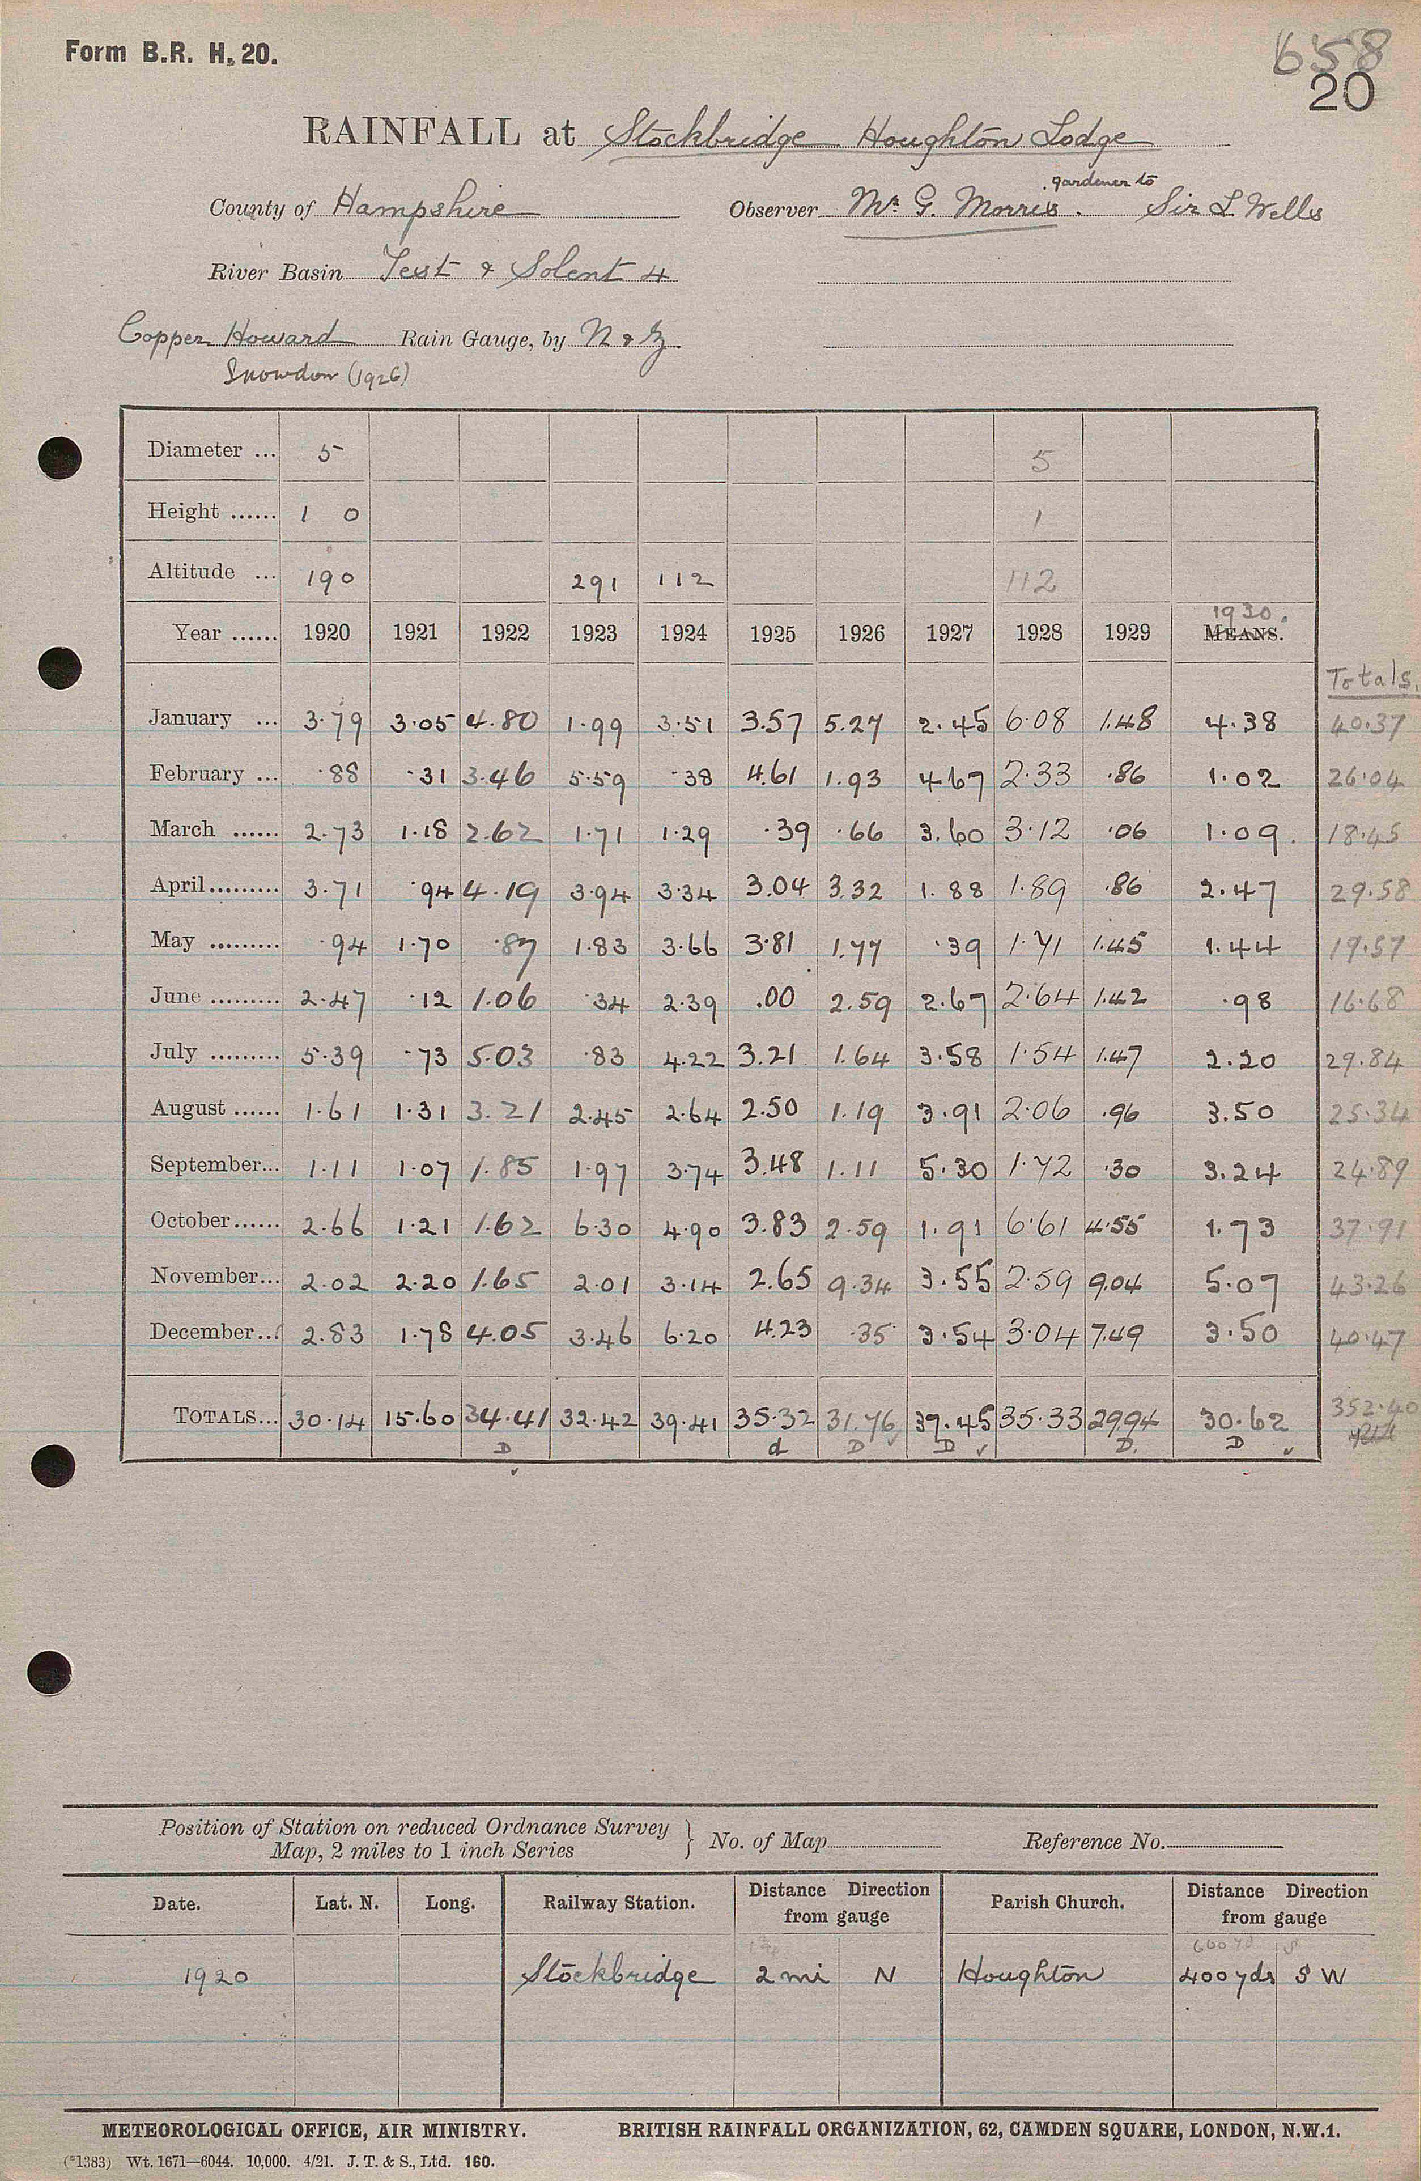 Form B.R. H. 20.
658
20
RAINFALL at Stockbridge Houghton Lodge
County of Hampshire Observer Mr. G. Morris. gardener to Sir L Wells
River Basin Test & Solent 4
Copper Howard Rain Gauge, by N & Z
Snowdon (1926)
Diameter ... 5 5
Height ...... 1 0 1
Altitude ... 190 291 112 112
1930.
Year ...... 1920 1921 1922 1923 1924 1925 1926 1927 1928 1929 MEANS.
Totals.
January ... 3.79 3.05 4.80 1.99 3.51 3.57 5.27 2.45 6.08 1.48 4.38 40.37
February ... .88 .31 3.46 5.59 .38 4.61 1.93 4.67 2.33 .86 1.02 26.04
March ...... 2.73 1.18 2.62 1.71 1.29 .39 .66 3.60 3.12 .06 1.09. 18.45
April......... 3.71 .94 4.19 3.94 3.34 3.04 3.32 1.88 1.89 .86 2.47 29.58
May ......... .94 1.70 .87 1.83 3.66 3.81 1.77 .39 1.71 1.45 1.44 19.57
June ......... 2.47 .12 1.06 .34 2.39 .00 2.59 2.67 2.64 1.42 .98 16.68
July ......... 5.39 .73 5.03 .83 4.22 3.21 1.64 3.58 1.54 1.47 2.20 29.84
August ...... 1.61 1.31 3.21 2.45 2.64 2.50 1.19 3.91 2.06 .96 3.50 25.34
September... 1.11 1.07 1.85 1.97 3.74 3.48 1.11 5.30 1.72 .30 3.24 24.89
October...... 2.66 1.21 1.62 6.30 4.90 3.83 2.59 1.91 6.61 4.55 1.73 37.91
November... 2.02 2.20 1.65 2.01 3.14 2.65 9.34 3.55 2.59 9.04 5.07 43.26
December... 2.83 1.78 4.05 3.46 6.20 4.23 .35 3.54 3.04 7.49 3.50 40.47
TOTALS... 30.14 15.60 34.41 32.42 39.41 35.32 31.76 37.45 35.33 29.94 30.62 352.40
D d D D D. D
Position of Station on reduced Ordnance Survey
Map, 2 miles to 1 inch Series
No. of Map Reference No.
Date. Lat. N. Long. Railway Station. Distance Direction from gauge Parish Church. Distance Direction from gauge
600 yds S
1920 Stockbridge 2 mi N Houghton 400 yds S W
METEOROLOGICAL OFFICE, AIR MINISTRY. BRITISH RAINFALL ORGANIZATION, 62, CAMDEN SQUARE, LONDON, N.W.1.
(*1383) Wt. 1671—6044. 10,000. 4/21. J. T. & S., Ltd. 160.